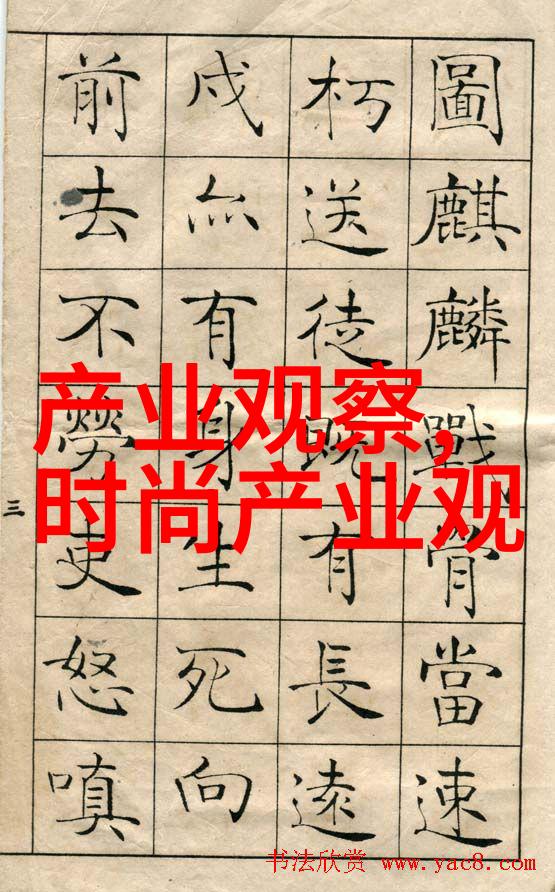 圖麒麟戰骨當速
朽送徒既有長遠
戍亦有身生死向
前去不勞吏怒嗔
三
产业观察,
时尚产业观
书法欣赏 www.yac8.com